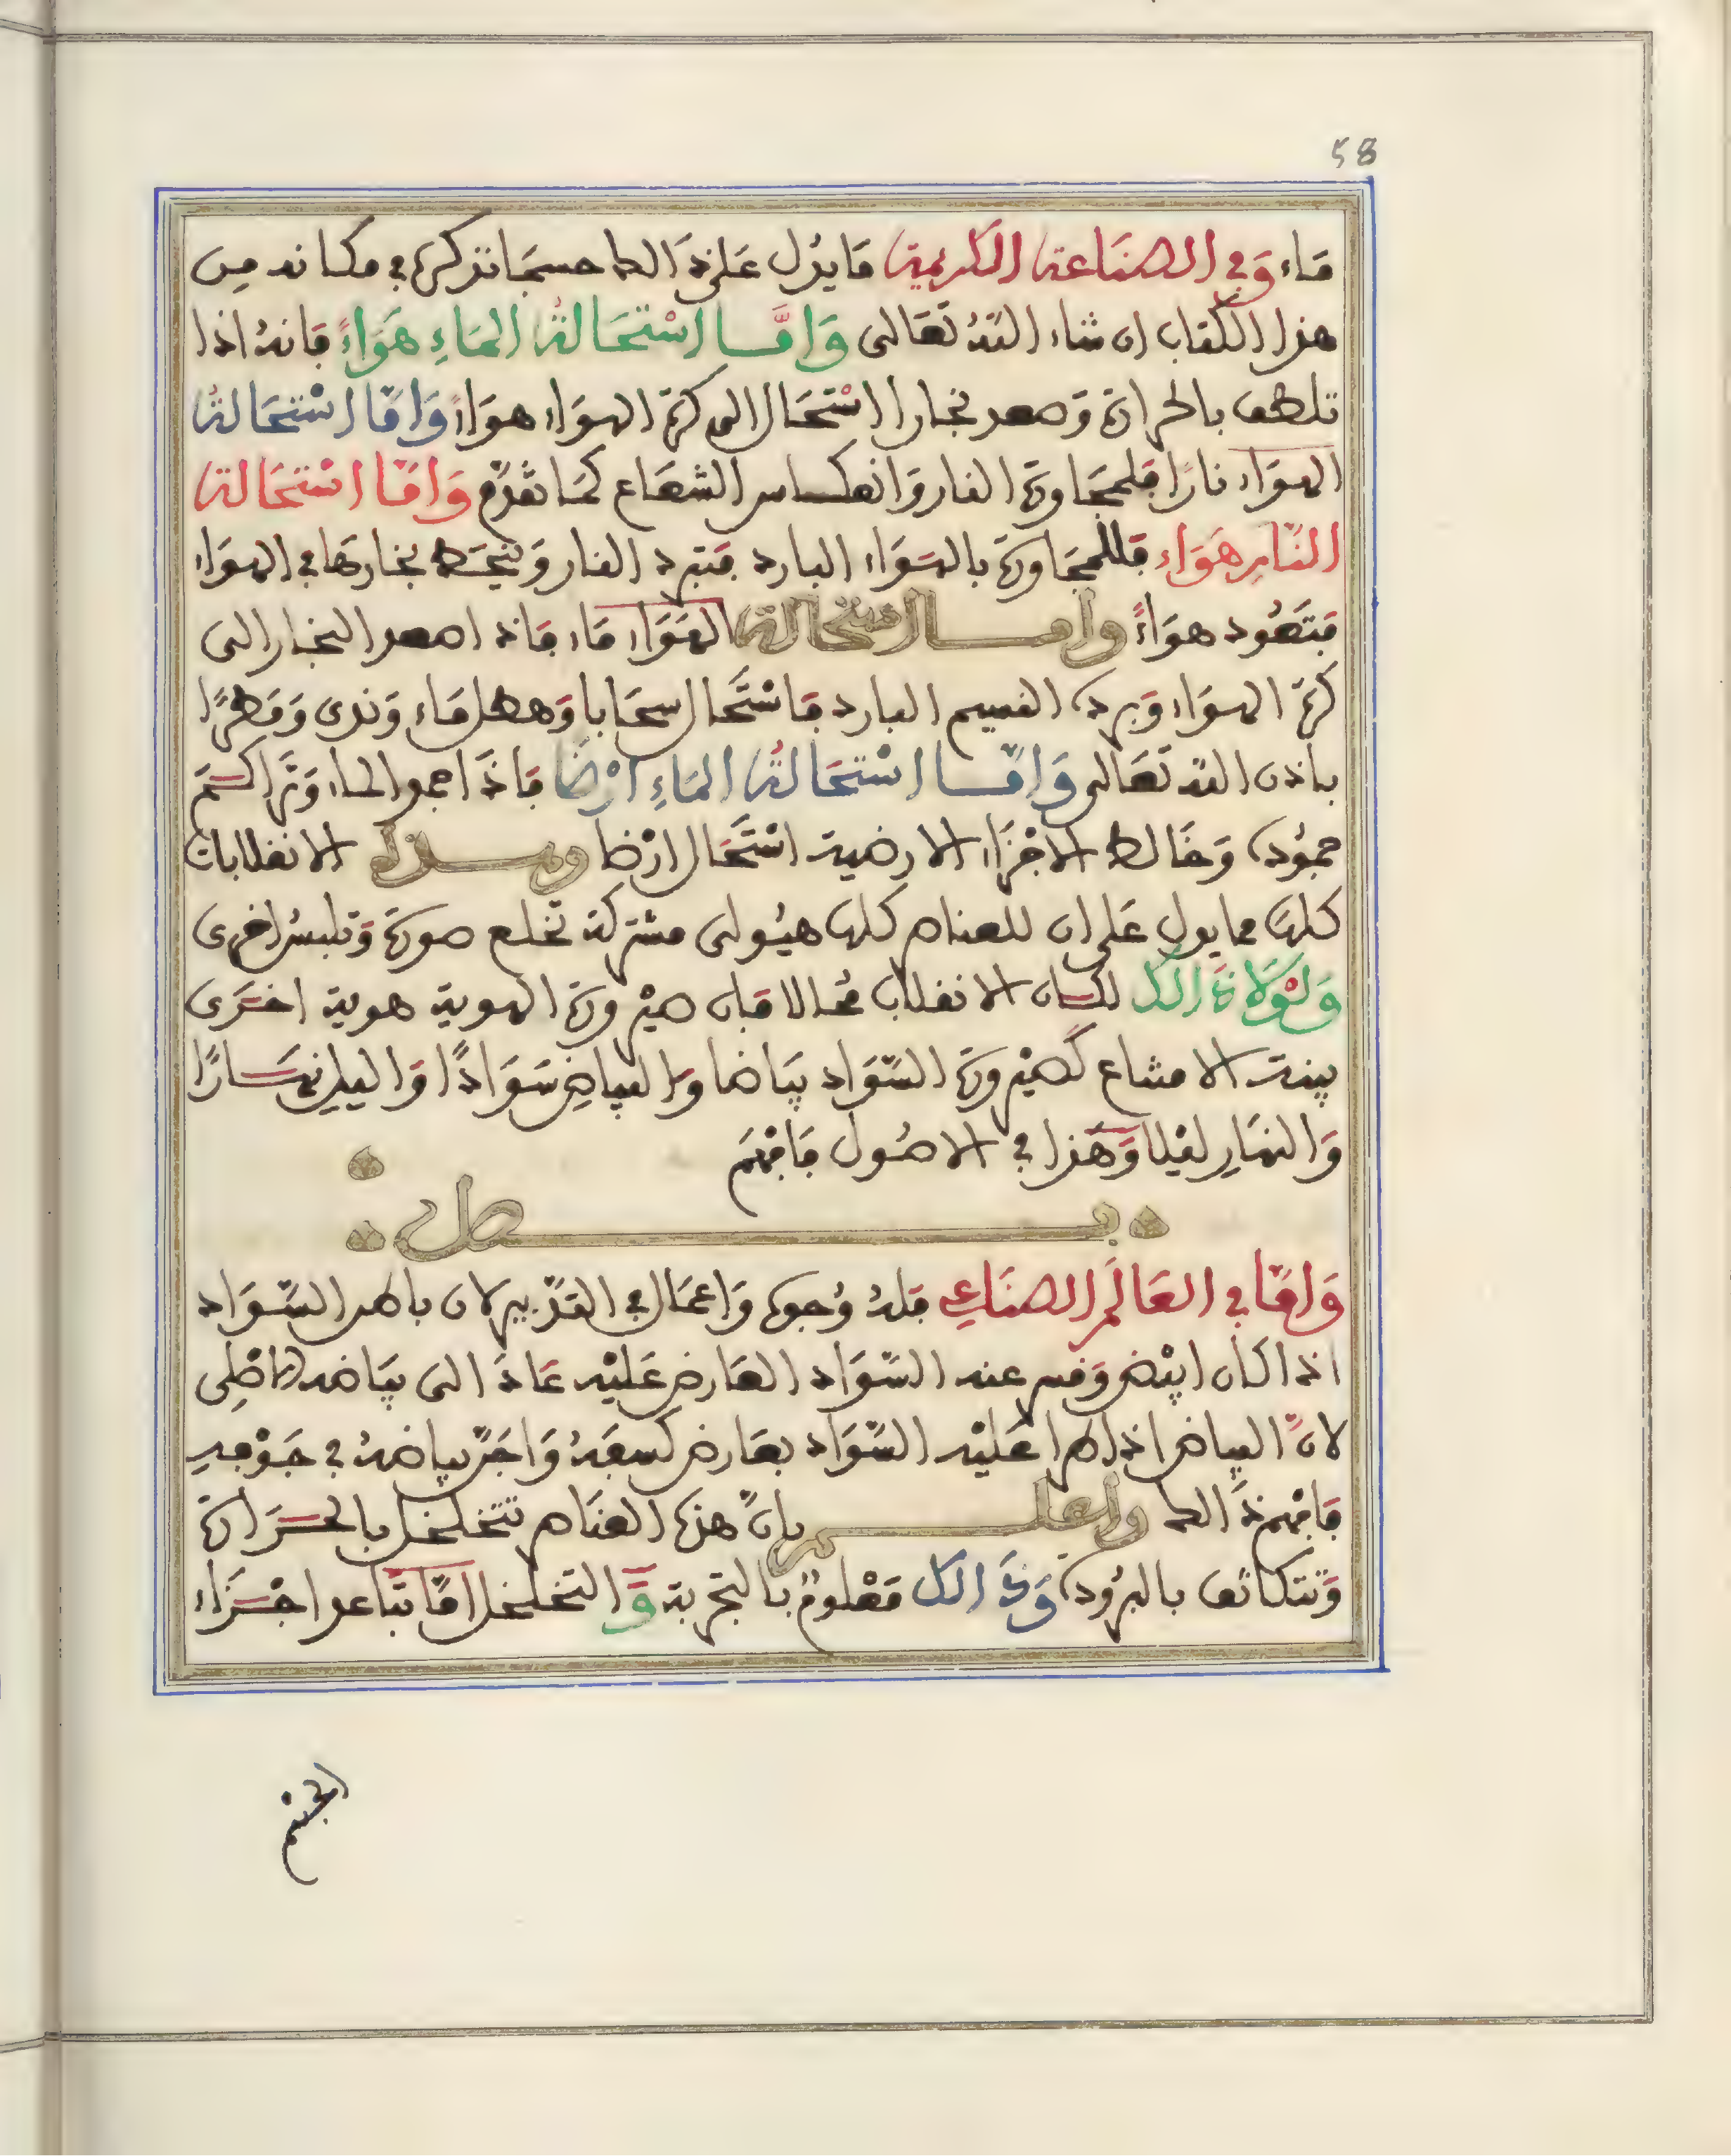 58
ماء وَفي الصنَاعة الكريمة مَا يدُل عَلى ذَالك حسبمَا نذكره في مكانه مِن
هذا الكتاب ان شاء اللهُ تعَالى وَامَّا اسْتحَالةُ المَاءِ هَوَاءً فَانهُ اذا
تلطف بالحرارة وَصعد بخارا اسْتحَال الى كرة الهوَاء هوَاءً وَامّا اسْتحَالةُ
الهوَاء نارًا فلمجَاورة النار وَانعكاس الشعَاع كمَا تقدّم وَامّا اسْتحَالة
النّارِ هَوَاء فللمجَاورة بالهوَاء البارد فتبرد النار وَينحَط بخارهَا في الهوَاء
فتَعُود هوَاءً وامـا استحالة الهوَاء مَاء فانه اصعد البخار الى
كرة الهوَاء وَبرده النسيم البارد فاسْتَحَال سحَابا وَهطل مَاء وَندى وَمَطرًا
باذن الله تعَالى وَامّـا اسْتحَالةُ المَاءِ ارْضًا فاذَا جمد الماء وَترَاكـم
جمُوده وَخَالط الاجْزَاء الارضية اسْتَحَال ارْضا وهـذه الانقلابات
كلهَا مما يدل عَلى ان للعناصر كلها هيُولى مشتركة تخلع صورة وَتلبسُ اخرى
وَلوْلَا ذَالك لكـان الانقلاب محالا فان صيْرورة الهوية هوية اخـرَى
بينة الامتناع كصيْرورة السّوَاد بيَاضا وَالبياضِ سَوَادًا وَاليلِ نهـَارًا
وَالنهَارِ ليْلا وَهَذا في الاصُول فَافهَم
فـصل
وَامّا في العَالَمِ الصنَاعِي فلهُ وُجوه وَاعمَال في التدّبير لان باطن السّوَاد
اذا كان ابيْض وَفسر عنه السّوَاد العَارض عَليْه عَادَ الى بيَاضه الاصْلي
لانّ البياض اذا طرا عَليْه السّوَاد بعَارض كسفَهُ وَاجَنّ بياضهُ في جَوْفهِ
فَافهم ذَالك واعلـم بانّ هذه العنَاصر تتخلخل بالحـرَارة
وَتتكاثف بالبرُودة وَذَالك مَعْلومٌ بالتجربة وَالتخلخل امّا تبَاعد اجْـزَاء
الجسم